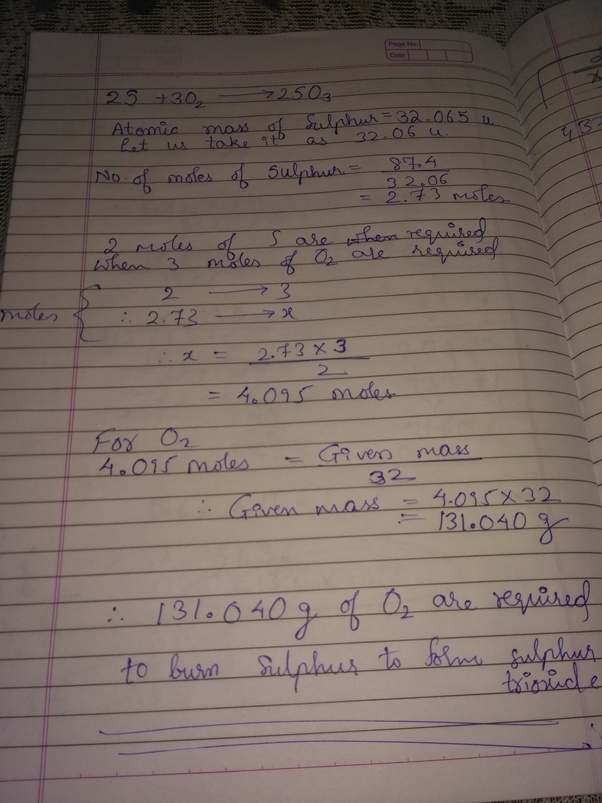 Page No.
Date
2S + 3O₂ ⟶ 2SO₃
Atomic mass of Sulphur = 32.065 u
let us take it as 32.06 u.
No. of moles of sulphur = 87.4 / 32.06
= 2.73 moles.
2 moles of S are required
when 3 moles of O₂ are required
moles { 2 ⟶ 3
∴ 2.73 ⟶ x
∴ x = 2.73 × 3 / 2
= 4.095 moles
For O₂
4.095 moles = Given mass / 32
∴ Given mass = 4.095 × 32
= 131.040 g
∴ 131.040 g of O₂ are required
to burn sulphur to form sulphur
trioxide